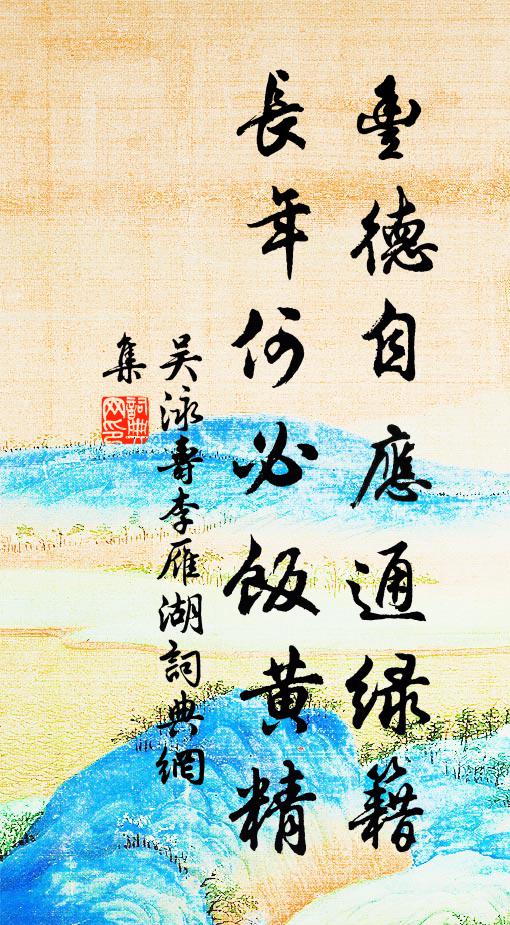 豐德自應通綠籍
長年何必飯黃精
吴泳壽李雁湖詞典網
集
詞典网印